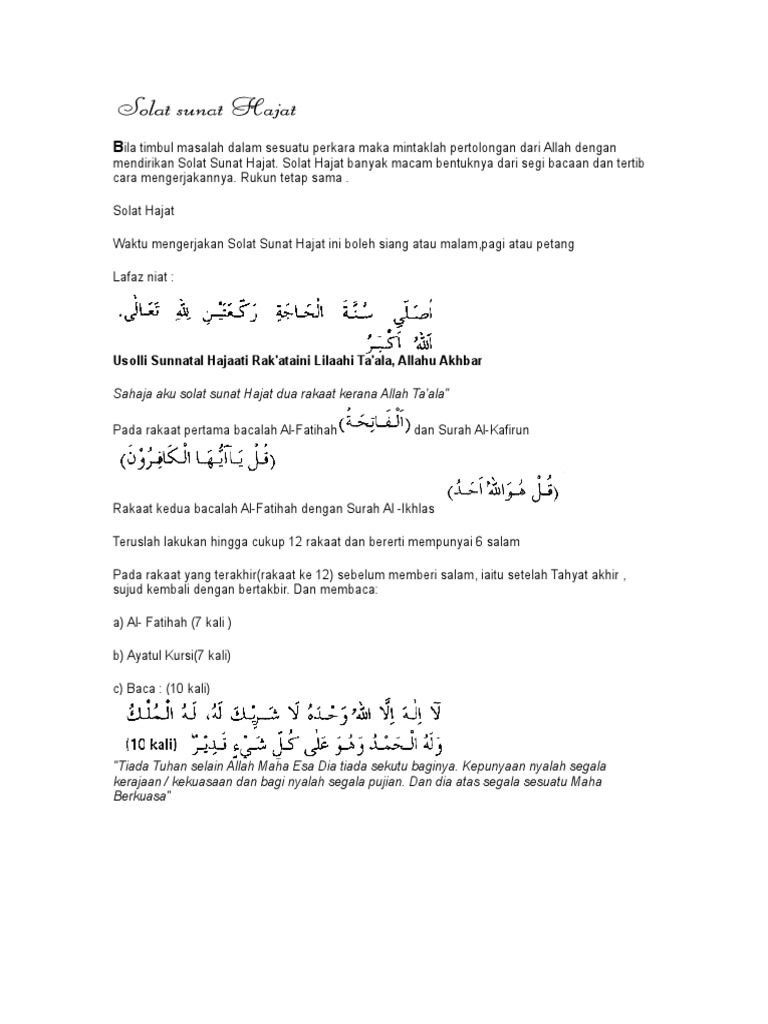 Solat sunat Hajat
Bila timbul masalah dalam sesuatu perkara maka mintaklah pertolongan dari Allah dengan
mendirikan Solat Sunat Hajat. Solat Hajat banyak macam bentuknya dari segi bacaan dan tertib
cara mengerjakannya. Rukun tetap sama .
Solat Hajat
Waktu mengerjakan Solat Sunat Hajat ini boleh siang atau malam,pagi atau petang
Lafaz niat :
اُصَلِّي سُنَّةَ الْحَاجَةِ رَكْعَتَيْنِ لِلّٰهِ تَعَالٰى.
اَللّٰهُ اَكْبَرُ
Usolli Sunnatal Hajaati Rak'ataini Lilaahi Ta'ala, Allahu Akhbar
Sahaja aku solat sunat Hajat dua rakaat kerana Allah Ta'ala"
Pada rakaat pertama bacalah Al-Fatihah (اَلْفَاتِحَةُ) dan Surah Al-Kafirun
(قُلْ يَاۤاَيُّهَا الْكَافِرُوْنَ)
(قُلْ هُوَاللّٰهُ اَحَدُ)
Rakaat kedua bacalah Al-Fatihah dengan Surah Al -Ikhlas
Teruslah lakukan hingga cukup 12 rakaat dan bererti mempunyai 6 salam
Pada rakaat yang terakhir(rakaat ke 12) sebelum memberi salam, iaitu setelah Tahyat akhir ,
sujud kembali dengan bertakbir. Dan membaca:
a) Al- Fatihah (7 kali )
b) Ayatul Kursi(7 kali)
c) Baca : (10 kali)
لَآ اِلٰهَ اِلَّا اللّٰهُ وَحْدَهُ لَا شَرِيْكَ لَهُ، لَهُ الْمُلْكُ
وَلَهُ الْحَمْدُ وَهُوَ عَلٰى كُلِّ شَيْءٍ قَدِيْرٌ (10 kali)
"Tiada Tuhan selain Allah Maha Esa Dia tiada sekutu baginya. Kepunyaan nyalah segala
kerajaan / kekuasaan dan bagi nyalah segala pujian. Dan dia atas segala sesuatu Maha
Berkuasa"